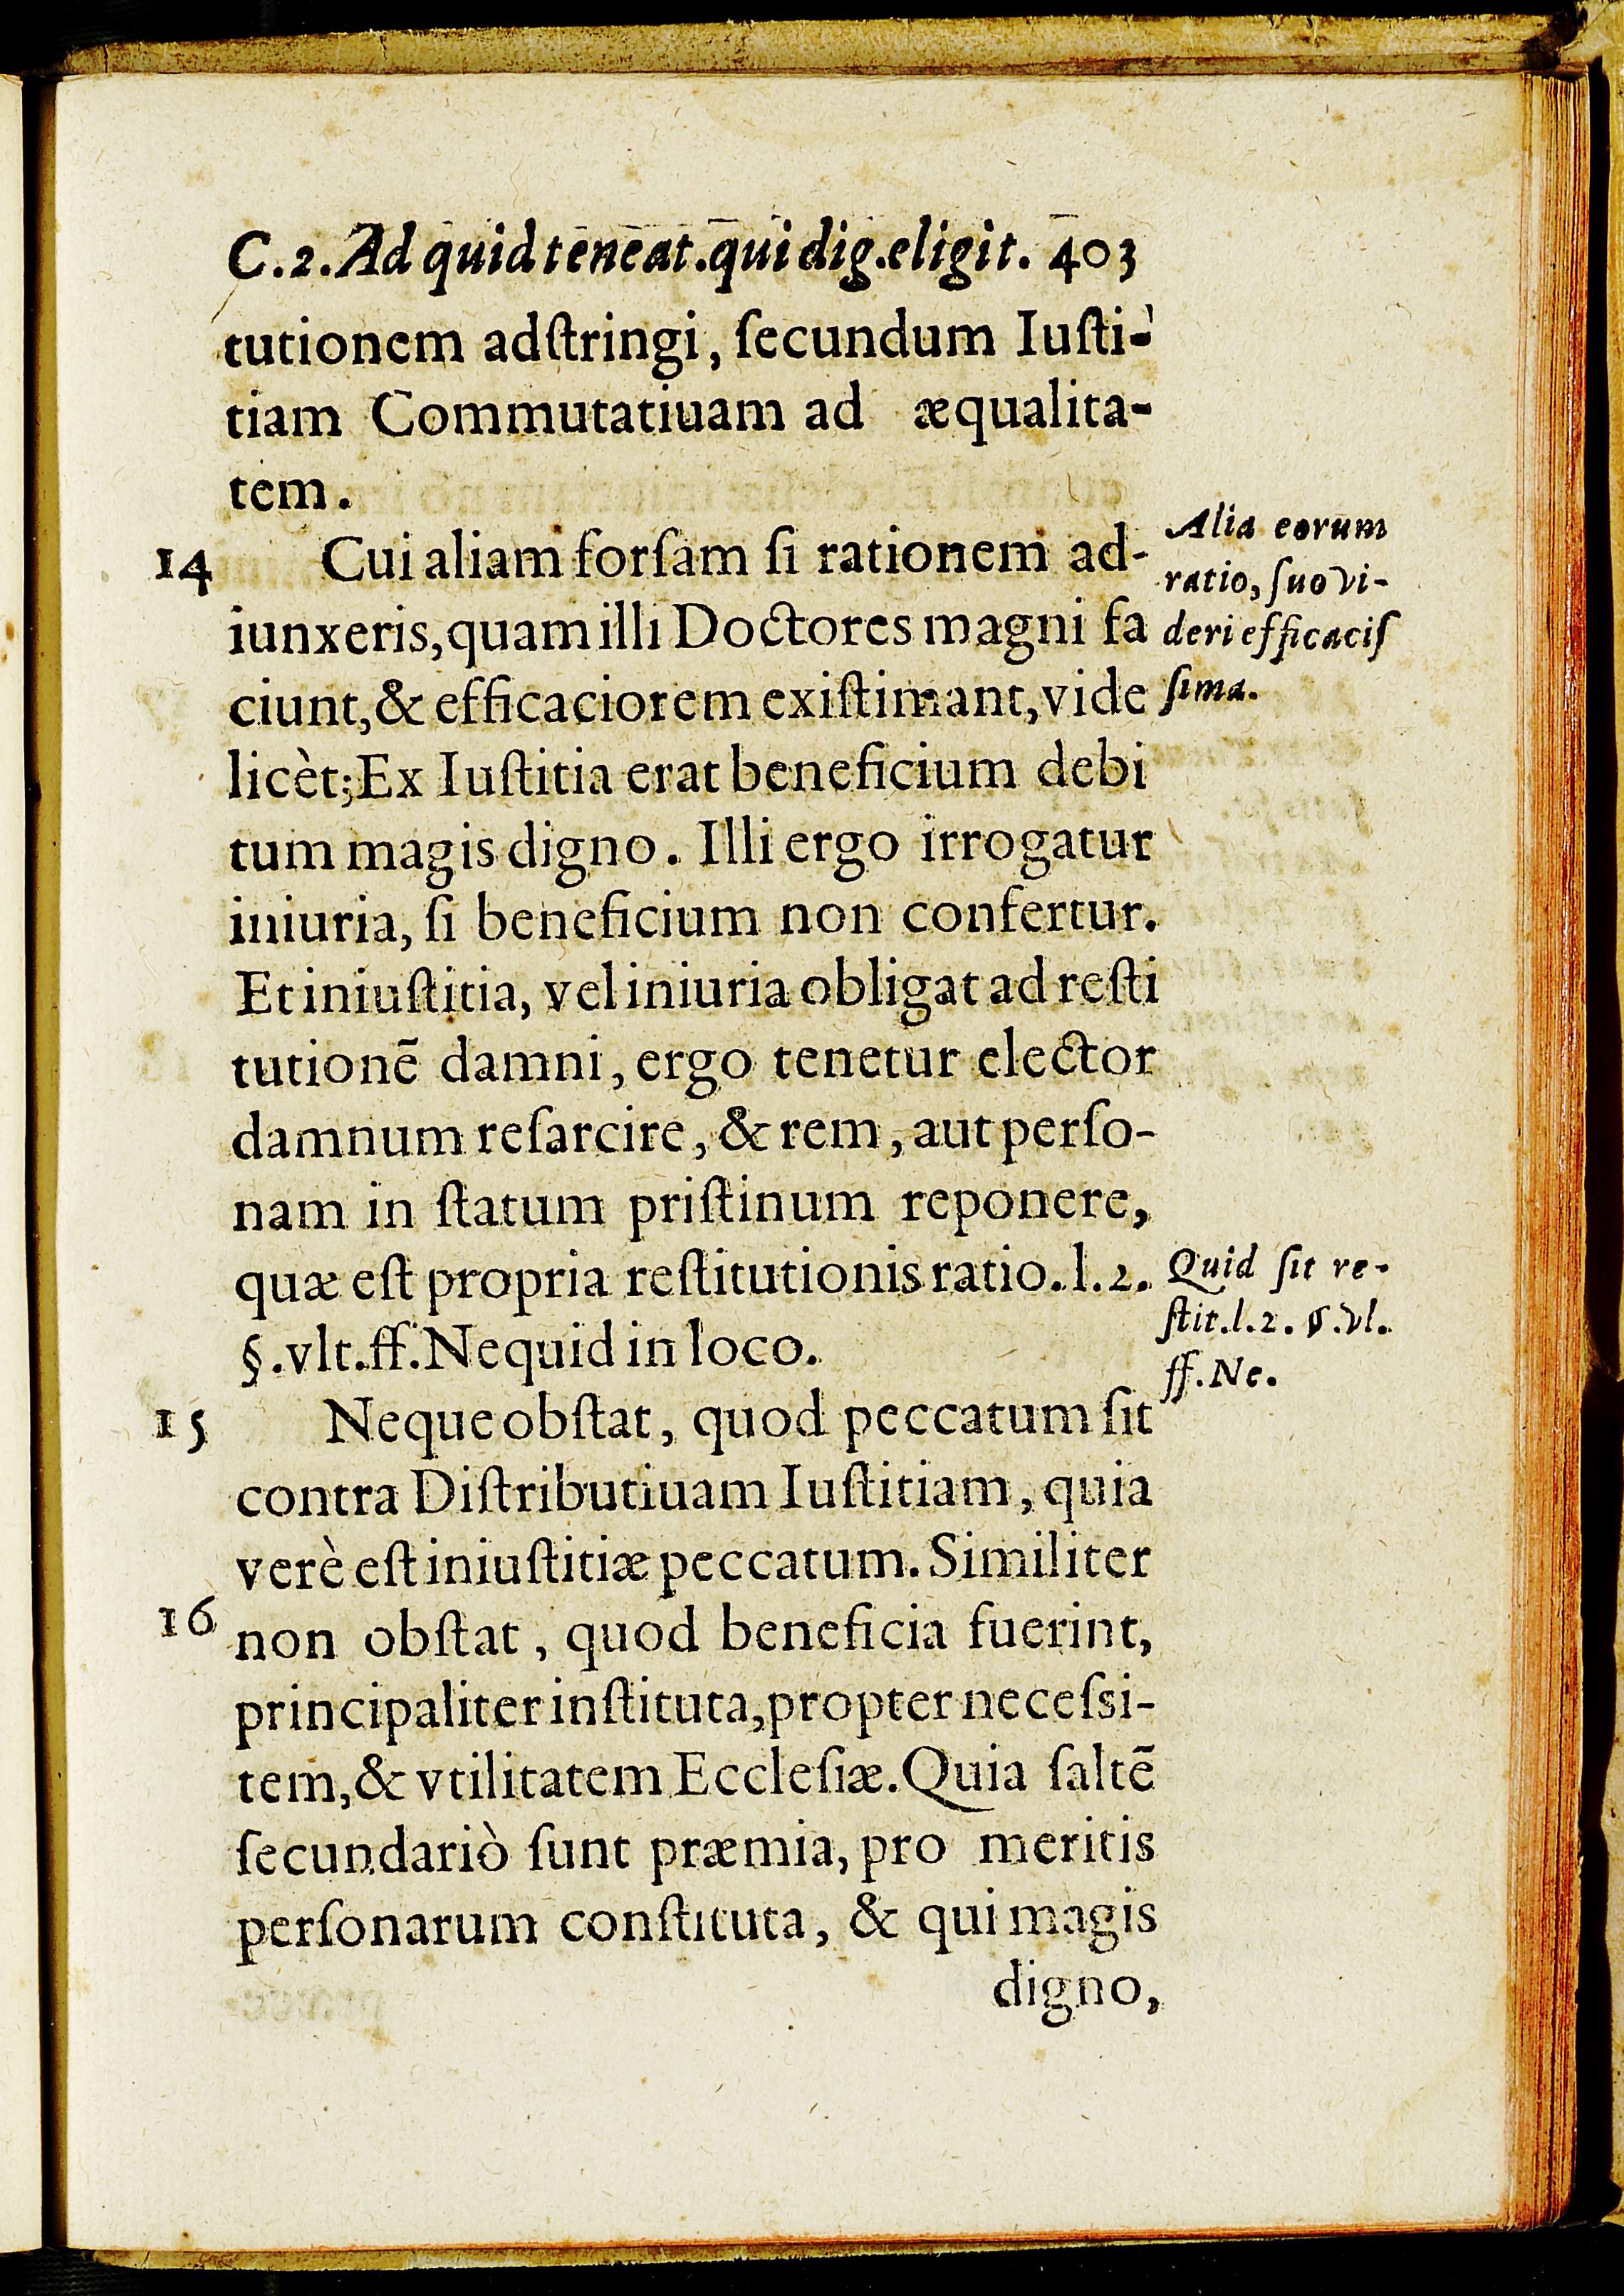 C.2. Ad quid teneat. qui dig. eligit. 403
tutionem adſtringi, ſecundum Iuſti-
tiam Commutatiuam ad æqualita-
tem.
14 Cui aliam forſam ſi rationem ad-
iunxeris, quam illi Doctores magni fa
ciunt, & efficaciorem exiſtimant, vide
licèt; Ex Iuſtitia erat beneficium debi
tum magis digno. Illi ergo irrogatur
iniuria, ſi beneficium non confertur.
Et iniuſtitia, vel iniuria obligat ad reſti
tutionē damni, ergo tenetur elector
damnum reſarcire, & rem, aut perſo-
nam in ſtatum priſtinum reponere,
quæ eſt propria reſtitutionis ratio. l. 2.
§. vlt. ff. Ne quid in loco.
15 Neque obſtat, quod peccatum ſit
contra Diſtributiuam Iuſtitiam, quia
verè eſt iniuſtitiæ peccatum. Similiter
16 non obſtat, quod beneficia fuerint,
principaliter inſtituta, propter neceſsi-
tem, & vtilitatem Eccleſiæ. Quia ſaltē
ſecundariò ſunt præmia, pro meritis
perſonarum conſtituta, & qui magis
digno,
Alia eorum
ratio, ſuo vi-
deri efficaciſ
ſima.
Quid ſit re-
ſtit. l. 2. §. vl.
ff. Ne.